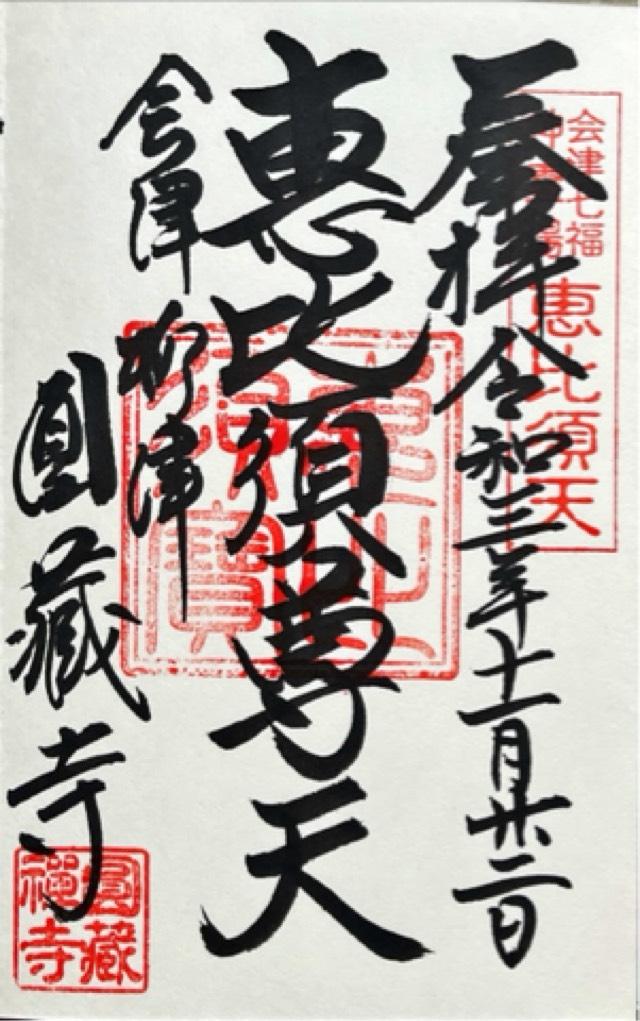 奉拝 令和三年十一月廿二日
会津七福
神霊場
恵比須天
恵比須尊天
会津 柳津
圓藏寺
佛法僧寶
圓藏
禪寺